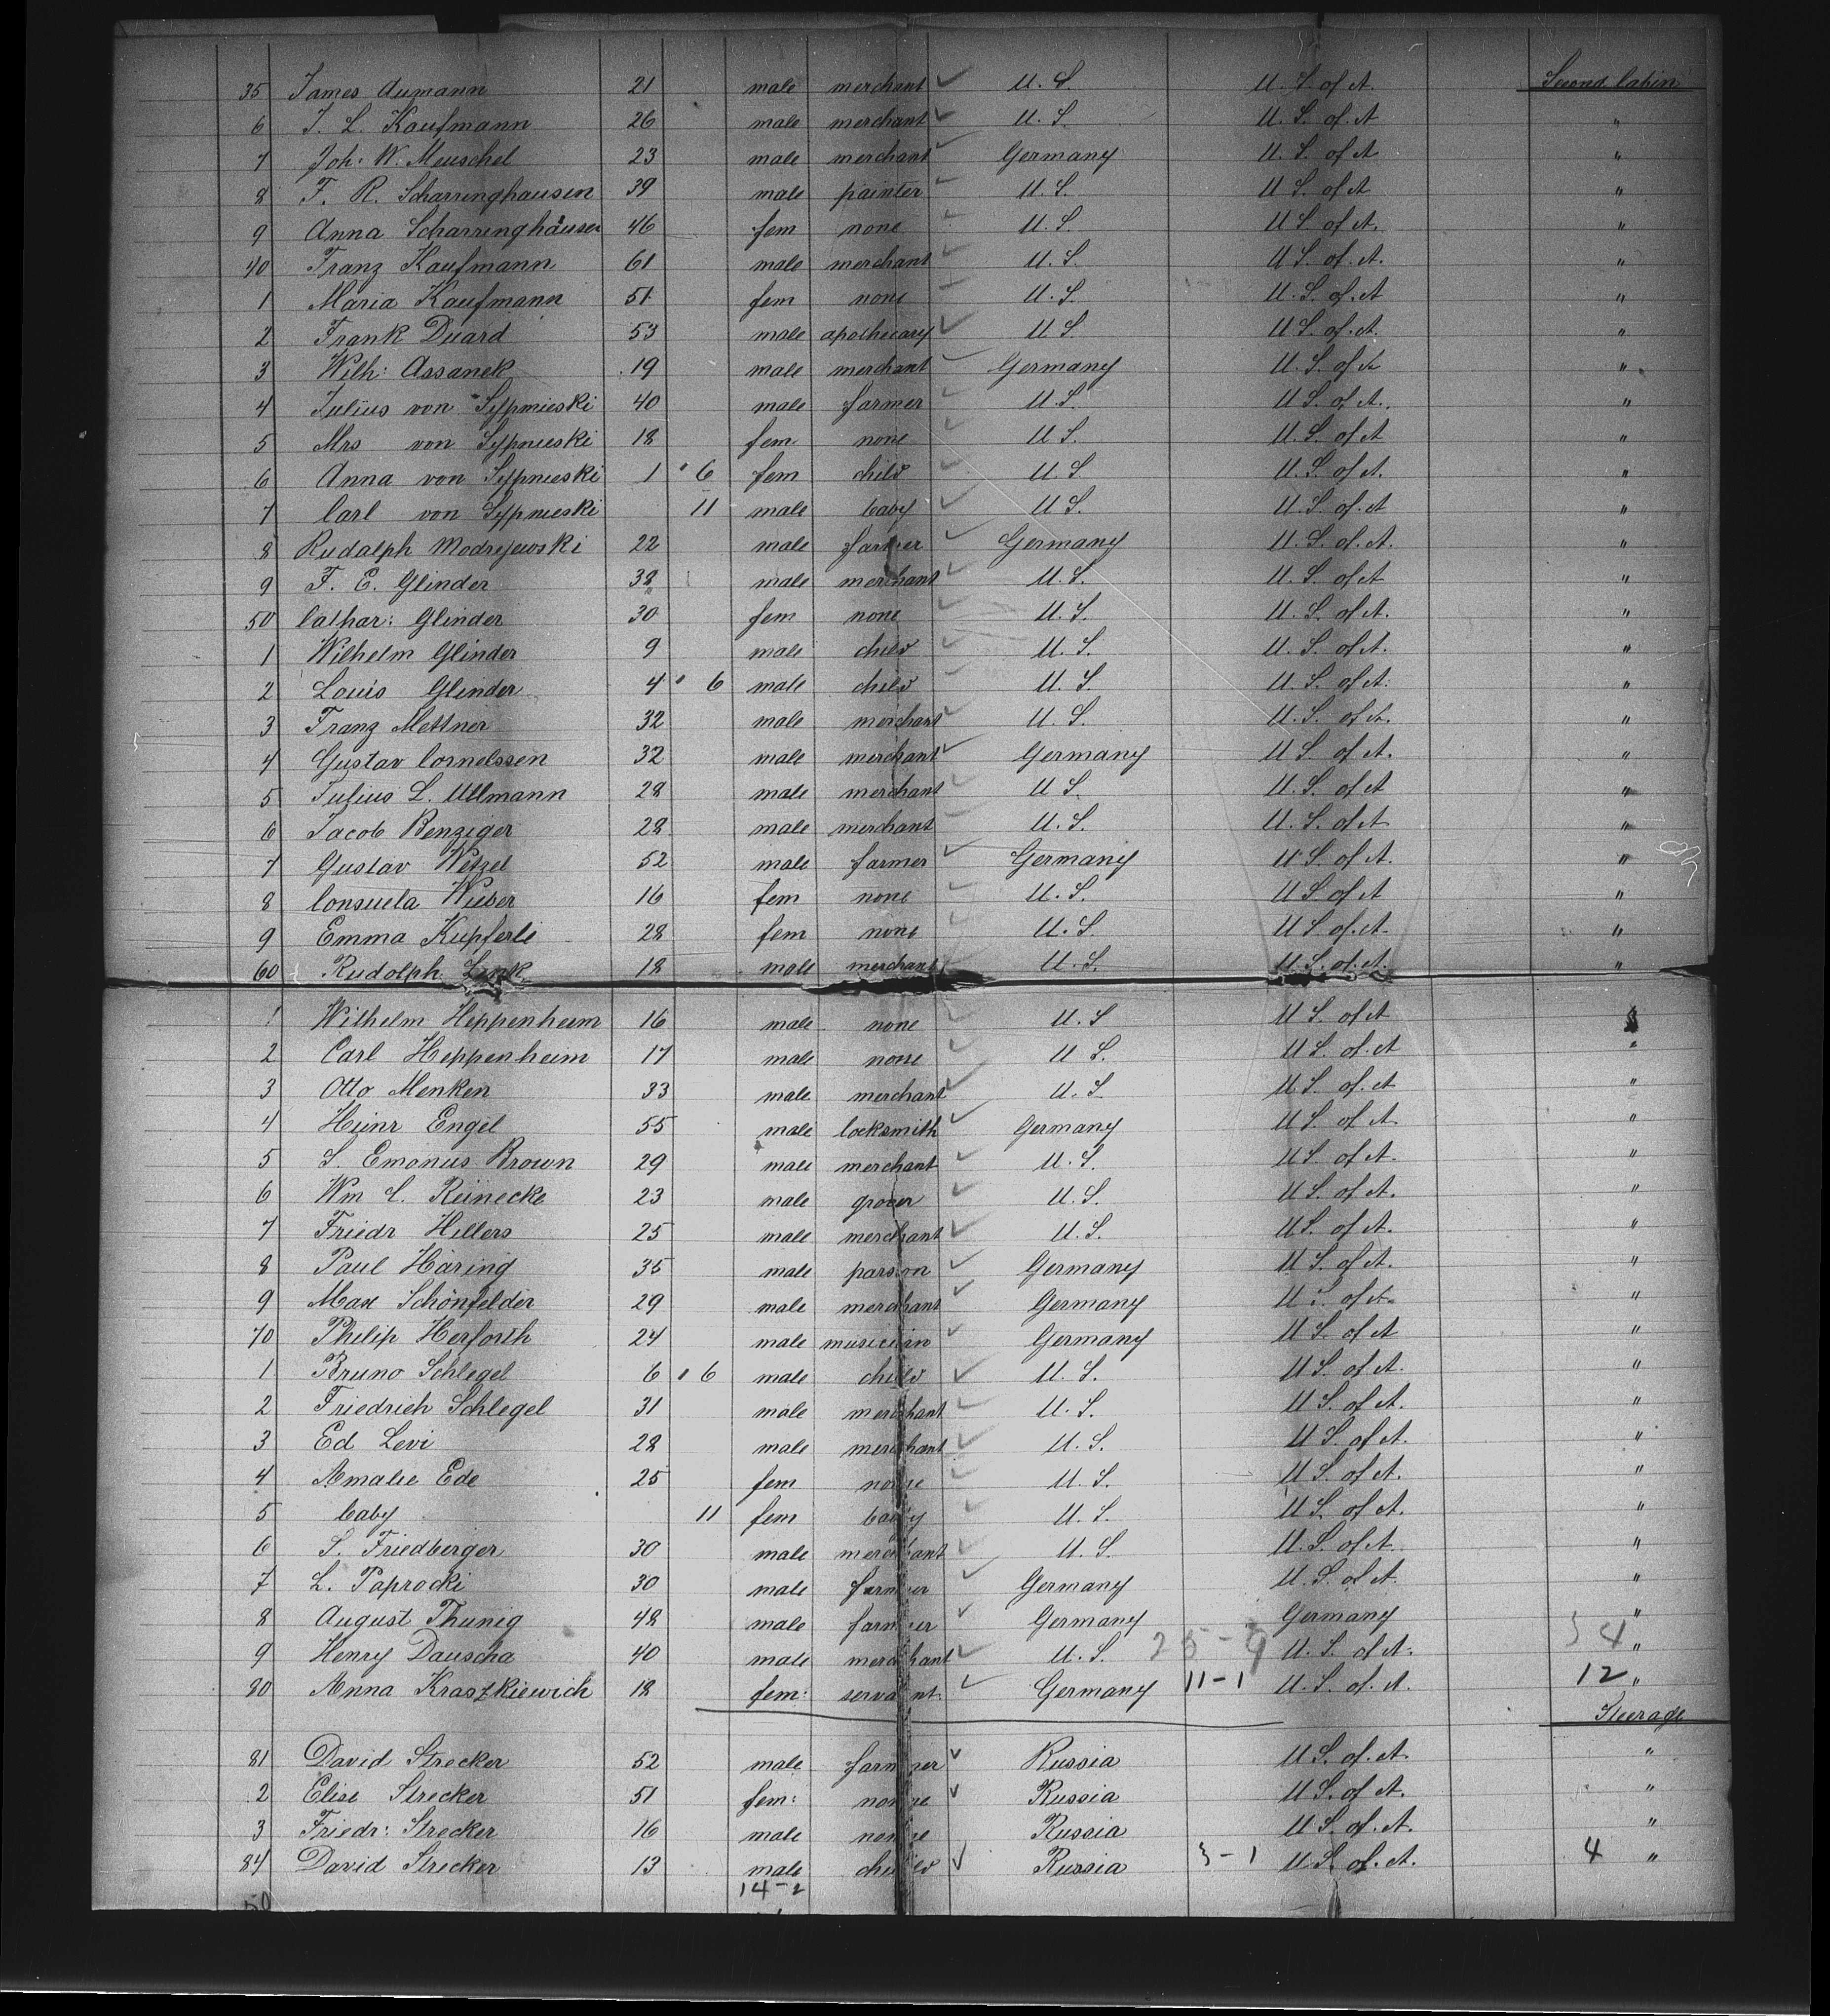 35 James Aumann 21 male merchant ✓ U. S. U. S. of A. Second Cabin
6 J. L. Kaufmann 26 male merchant ✓ U. S. U. S. of A "
7 Joh: W. Meuschel 23 male merchant ✓ Germany U. S. of A "
8 F. R. Scharringhausen 39 male painter ✓ U. S. U S. of A "
9 Anna Scharringhausen 46 fem none ✓ U. S. U S. of A. "
40 Franz Kaufmann 61 male merchant ✓ U. S. U S. of A. "
1 Maria Kaufmann 51 fem none ✓ U. S. U. S. of A "
2 Frank Duard 53 male apothecary ✓ U S. U S. of A. "
3 Wilh: Assanek 19 male merchant ✓ Germany U. S. of A "
4 Julius von Sypnieski 40 male farmer ✓ U. S. U S. of A. "
5 Mrs von Sypnieski 18 fem none ✓ U S. U. S. of A "
6 Anna von Sypnieski 1 " 6 fem child ✓ U. S U. S. of A. "
7 Carl von Sypnieski 11 male baby ✓ U S. U. S. of A "
8 Rudolph Modrejewski 22 male farmer ✓ Germany U. S. of A. "
9 F. E. Glinder 38 male merchant ✓ U. S. U. S. of A "
50 Cathar: Glinder 30 fem none ✓ U. S. U. S. of A. "
1 Wilhelm Glinder 9 male child ✓ U. S. U. S. of A. "
2 Louis Glinder 4 " 6 male child ✓ U. S. U. S. of A. "
3 Franz Mettner 32 male merchant ✓ U. S. U. S. of A. "
4 Gustav Cornelssen 32 male merchant ✓ Germany U S. of A. "
5 Julius L. Ullmann 28 male merchant ✓ U S. U. S. of A "
6 Jacob Benziger 28 male merchant ✓ U. S. U. S. of A "
7 Gustav Wetzel 52 male farmer ✓ Germany U S. of A. "
8 Consuela Wieber 16 fem none ✓ U. S. U S. of A "
9 Emma Kupferle 28 fem none ✓ U. S U S. of A. "
60 Rudolph Link 18 male merchant ✓ U. S. U. S. of A. "
1 Wilhelm Heppenheim 16 male none ✓ U. S U S. of A "
2 Carl Heppenheim 17 male none ✓ U S. U S. of A "
3 Otto Menken 33 male merchant ✓ U. S. U. S. of A "
4 Heinr Engel 55 male locksmith ✓ Germany U S. of A "
5 S. Emonus Brown 29 male merchant ✓ U. S. U S. of A. "
6 Wm C. Reinecke 23 male grocer ✓ U. S. U S. of A. "
7 Friedr Hillers 25 male merchant ✓ U. S. U S. of A. "
8 Paul Häring 35 male parson ✓ Germany U S. of A. "
9 Max Schönfelder 29 male merchant ✓ Germany U S. of A. "
70 Philip Herforth 24 male musician ✓ Germany U S. of A "
1 Bruno Schlegel 6 " 6 male child ✓ U. S. U S. of A. "
2 Friedrich Schlegel 31 male merchant ✓ U. S. U S. of A. "
3 Ed Levi 28 male merchant ✓ U. S. U S. of A. "
4 Amalie Ede 25 fem none ✓ U. S. U S. of A. "
5 baby 11 fem baby ✓ U. S. U S. of A. "
6 S. Friedberger 30 male merchant ✓ U. S. U. S. of A. "
7 L. Paprocki 30 male farmer ✓ Germany U. S. of A. "
8 August Thunig 48 male farmer ✓ Germany Germany "
9 Henry Dauscha 40 male merchant ✓ U. S. 25-9 U. S. of A. 34 "
80 Anna Kraszkiewich 18 fem: servant ✓ Germany 11-1 U. S. of A. 12 "
Steerage
81 David Strecker 52 male farmer ✓ Russia U S. of A. "
2 Elise Strecker 51 fem: none ✓ Russia U S. of A. "
3 Friedr: Strecker 16 male none Russia U S. of A. "
84 David Strecker 13 male child ✓ Russia 3-1 U S. of A. 4 "
14-2
50